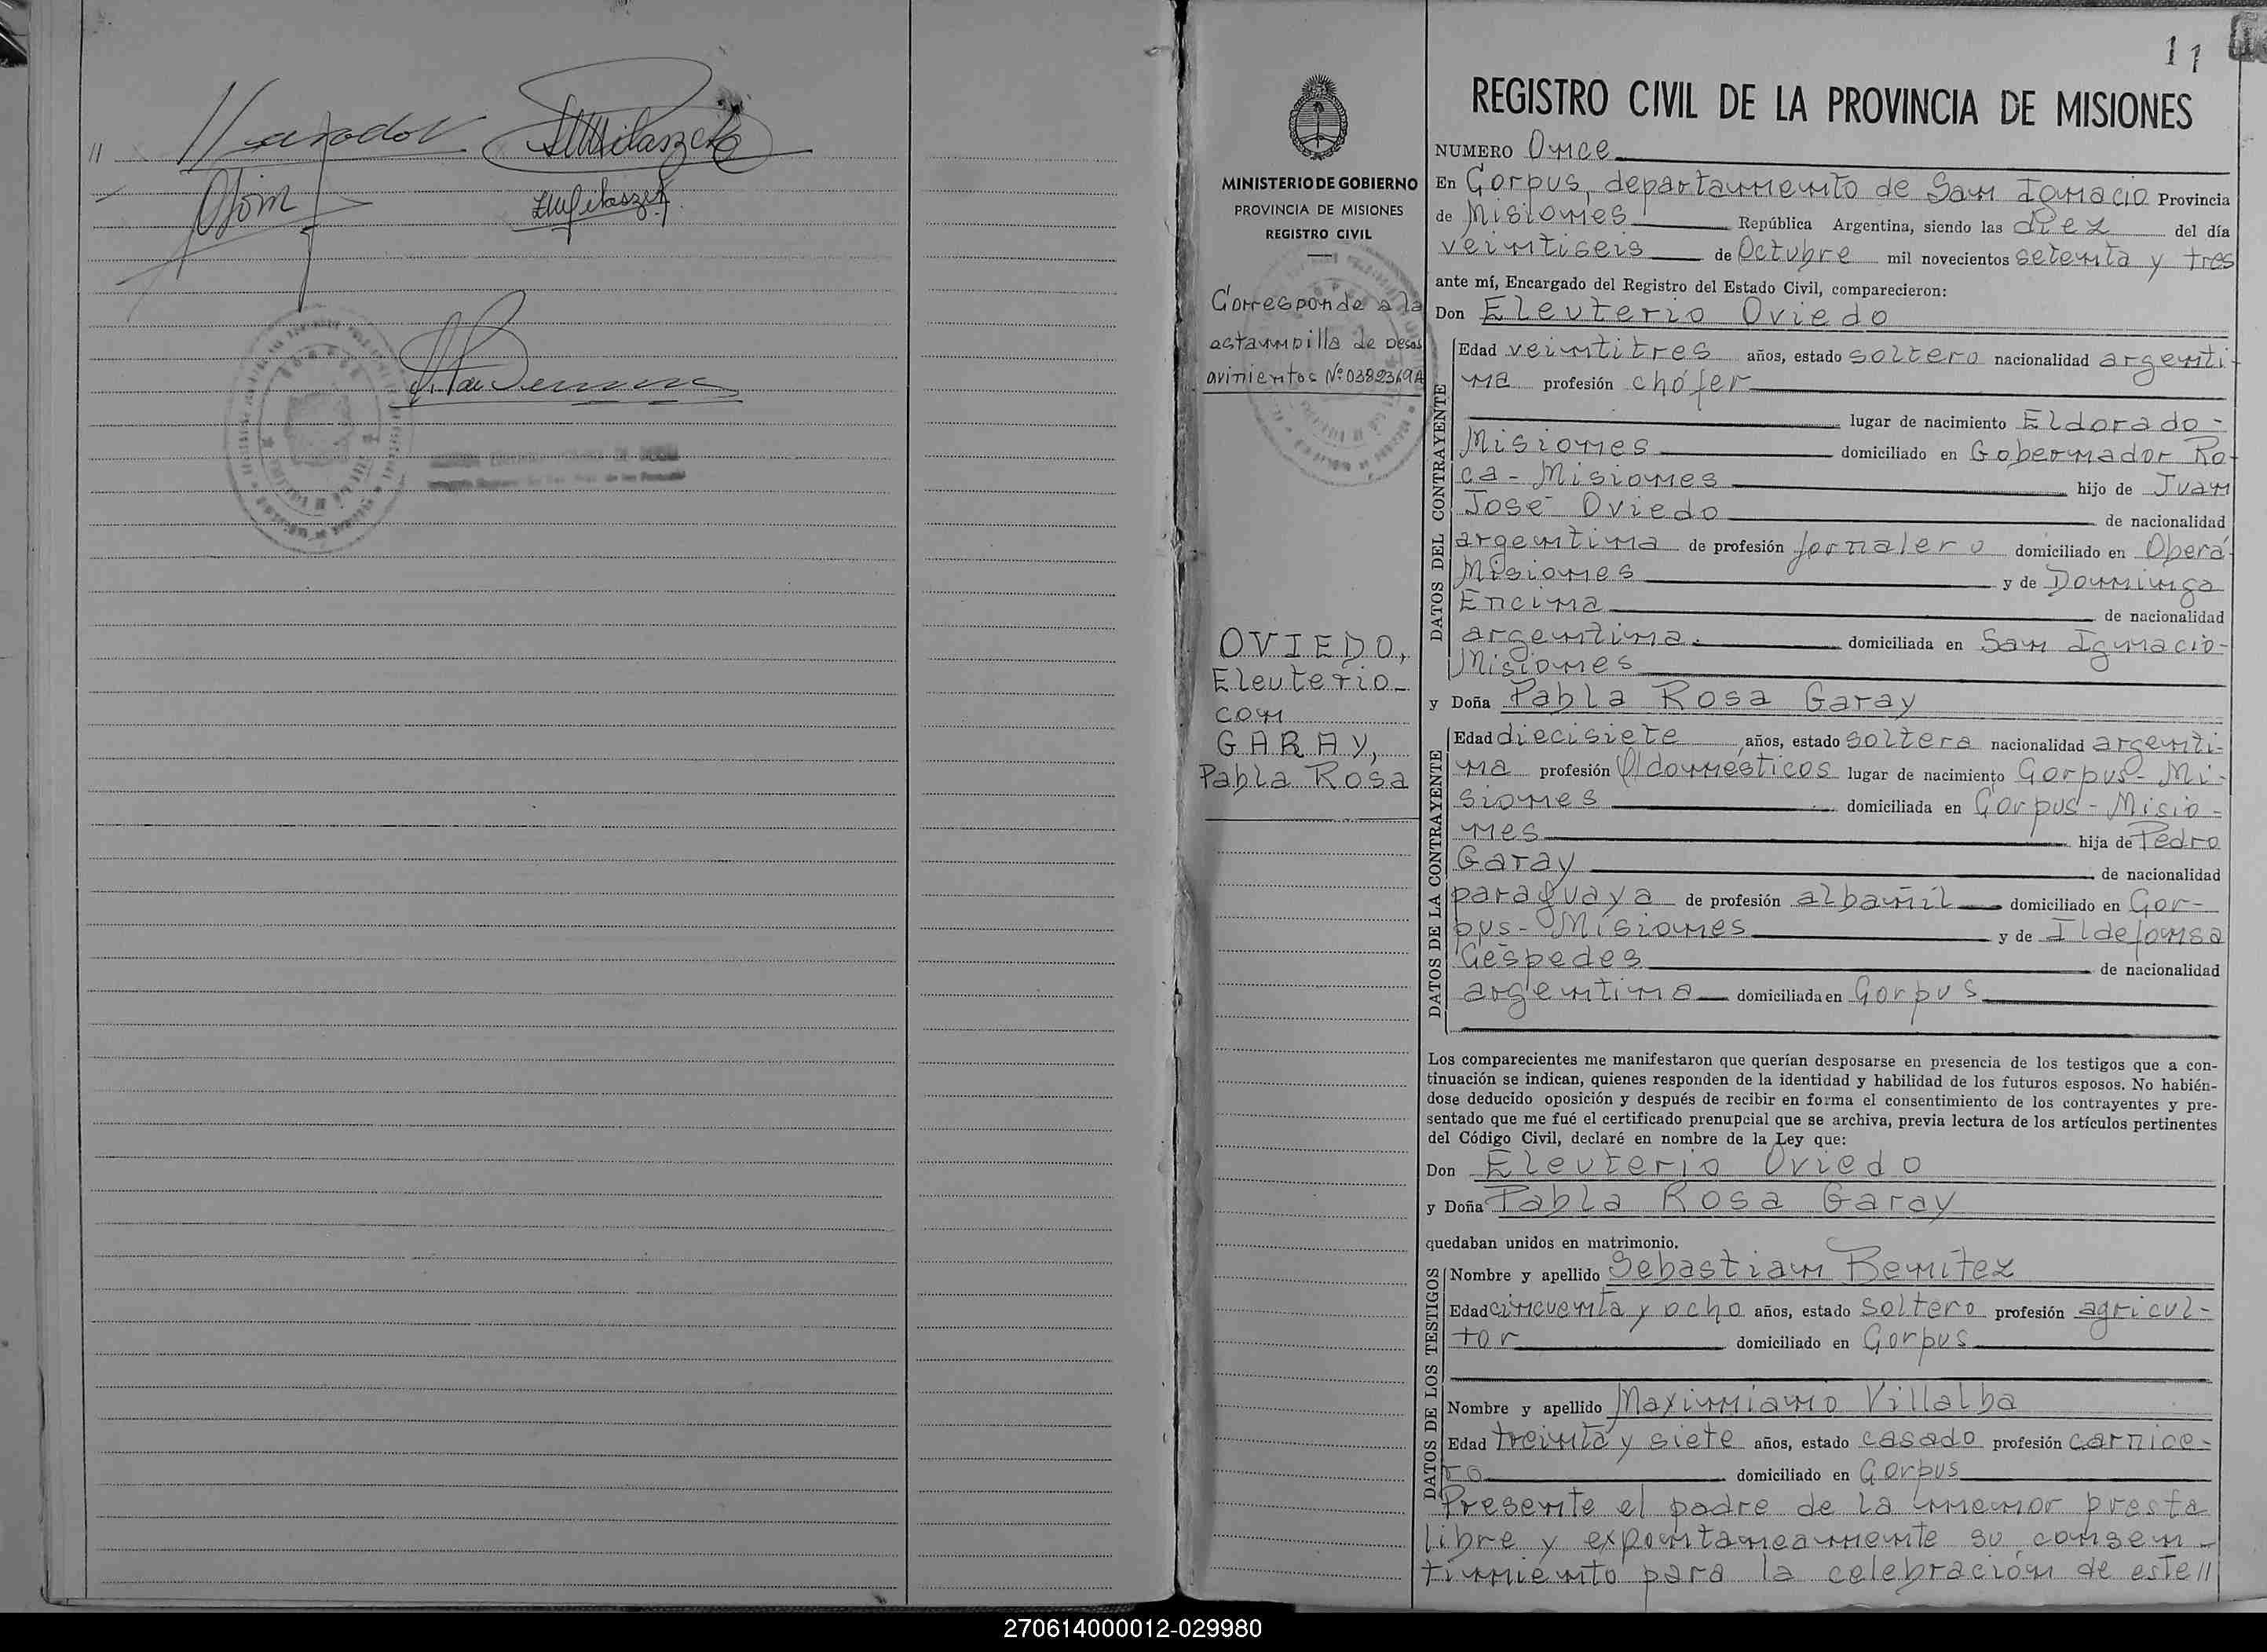 //
11
REGISTRO CIVIL DE LA PROVINCIA DE MISIONES
MINISTERIO DE GOBIERNO
PROVINCIA DE MISIONES
REGISTRO CIVIL
Corresponde a la
estampilla de Desa
avinientos Nº 0382369A
OVIEDO,
Eleuterio-
con
GARAY,
Pabla Rosa
NUMERO Once
En Corpus, departamento de San Ignacio Provincia
de Misiones República Argentina, siendo las diez del día
veintiseis de Octubre mil novecientos setenta y tres
ante mí, Encargado del Registro del Estado Civil, comparecieron:
Don Eleuterio Oviedo
DATOS DEL CONTRAYENTE
Edad veintitres años, estado soltero nacionalidad argenti-
na profesión chófer
lugar de nacimiento Eldorado-
Misiones domiciliado en Gobernador Ro-
ca-Misiones hijo de Juan
José Oviedo de nacionalidad
argentina de profesión jornalero domiciliado en Oberá-
Misiones y de Dominga
Encina de nacionalidad
argentina. domiciliada en San Ignacio-
Misiones
y Doña Pabla Rosa Garay
DATOS DE LA CONTRAYENTE
Edad diecisiete años, estado soltera nacionalidad argenti-
na profesión Q/domesticos lugar de nacimiento Corpus-Mi-
siones domiciliada en Corpus-Misio-
nes hija de Pedro
Garay de nacionalidad
paraguaya de profesión albañil domiciliado en Cor-
pus-Misiones y de Ildefonsa
Céspedes de nacionalidad
argentina domiciliada en Corpus
Los comparecientes me manifestaron que querían desposarse en presencia de los testigos que a con-
tinuación se indican, quienes responden de la identidad y habilidad de los futuros esposos. No habién-
dose deducido oposición y después de recibir en forma el consentimiento de los contrayentes y pre-
sentado que me fué el certificado prenupcial que se archiva, previa lectura de los artículos pertinentes
del Código Civil, declaré en nombre de la Ley que:
Don Eleuterio Oviedo
y Doña Pabla Rosa Garay
quedaban unidos en matrimonio.
DATOS DE LOS TESTIGOS
Nombre y apellido Sebastian Benitez
Edad cincuenta y ocho años, estado soltero profesión agricul-
tor domiciliado en Corpus
Nombre y apellido Maximiano Villalba
Edad treinta y siete años, estado casado profesión carnice-
ro domiciliado en Corpus
Presente el padre de la menor presta
libre y expontaneamente su consen-
timiento para la celebración de este//
270614000012-029980